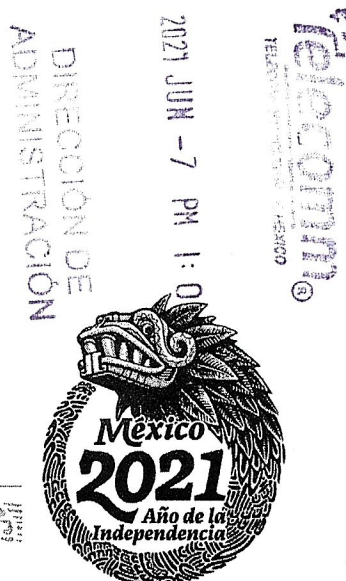 Telecomm®
2021 JUN -7 PM 1:0
DIRECCIÓN DE
ADMINISTRACIÓN
México
2021
Año de la
Independencia